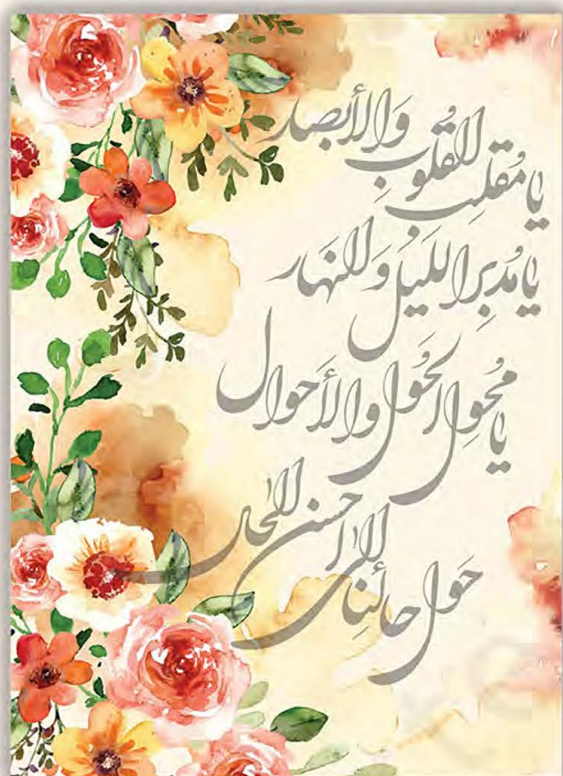 يا مقلب القلوب والأبصار
يا مدبر الليل والنهار
يا محول الحول والأحوال
حول حالنا الى احسن الحال